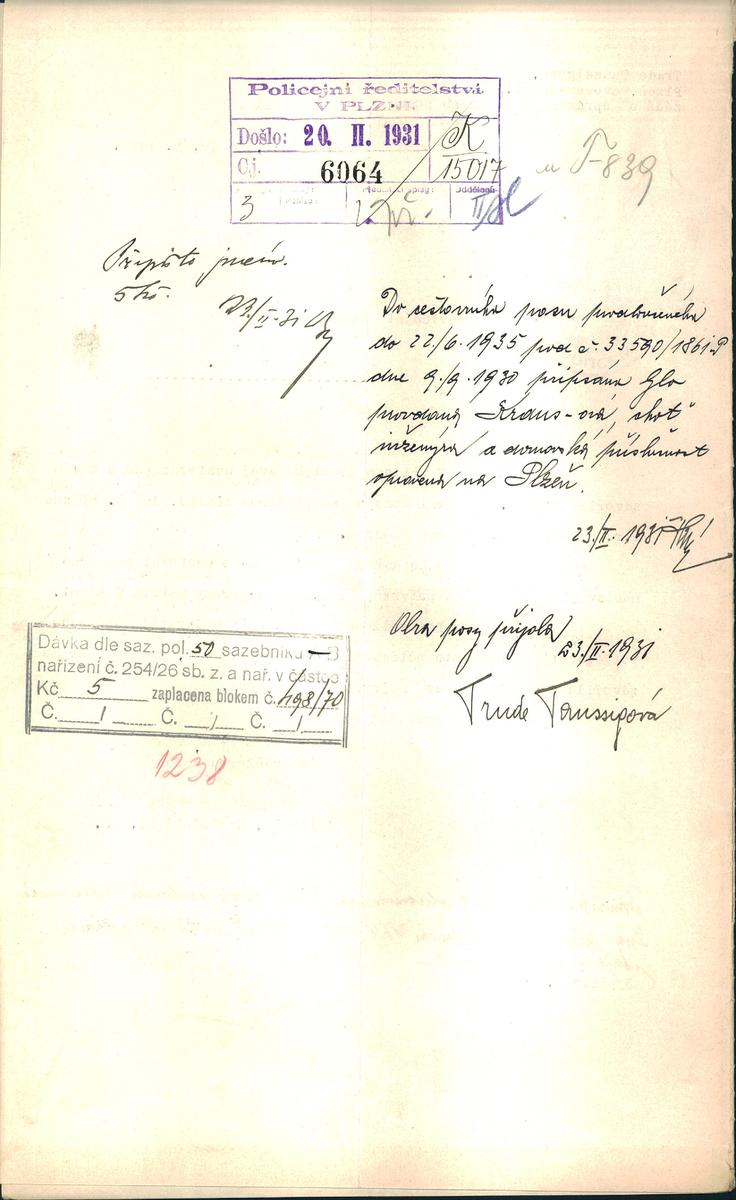 Policejní ředitelství
V PLZNI.
Došlo: 20. II. 1931
K
15017
Čj. 6064
3
Oddělení
II/
T-839
5 Kč.
23./II. 31
Do cestovního pasu prodlouženého
do 22/6. 1935 pod č. 33590/1861-P
dne 9./9. 1930 připsáno
provdaná Kraus-ová, choť
inženýra a domovská příslušnost
opravena na Plzeň.
23./II. 1931
Oba pasy přijala
23./II. 1931
Trude Taussigová
Dávka dle saz. pol. 50 sazebníku A-B
nařízení č. 254/26 sb. z. a nař. v částce
Kč 5 zaplacena blokem č. 498/70
Č. / Č. / Č. /
1238